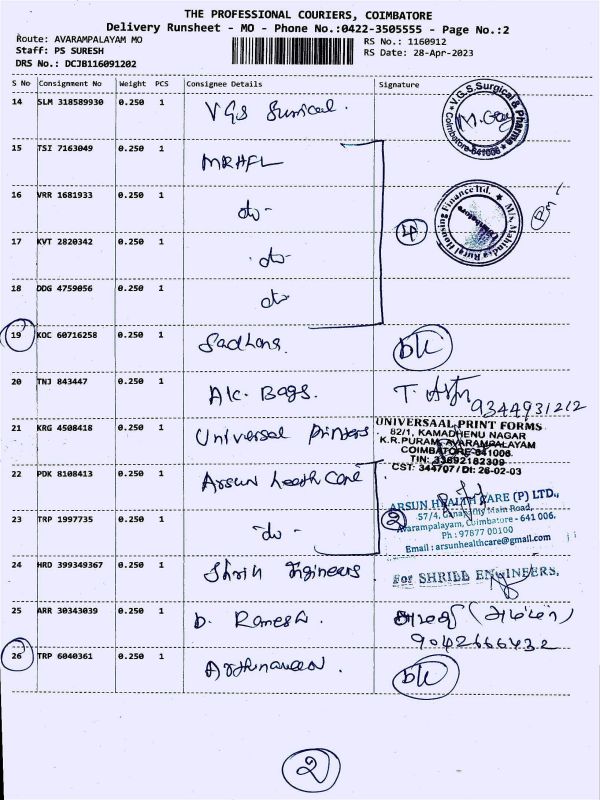 THE PROFESSIONAL COURIERS, COIMBATORE
Delivery Runsheet - MO - Phone No.:0422-3505555 - Page No.:2
Route: AVARAMPALAYAM MO
RS No.: 1160912
Staff: PS SURESH
RS Date: 28-Apr-2023
DRS No.: DCJB116091202
S No Consignment No Weight PCS Consignee Details Signature
14 SLM 318589930 0.250 1 V.G.S Surgical.
V.G.S.Surgical & Pharma
Coimbatore-641006
15 TSI 7163049 0.250 1 MRHFL
16 VRR 1681933 0.250 1 -do-
M/s. Mahindra Rural Housing Finance ltd.
17 KVT 2820342 0.250 1 -do- 4
18 DDG 4759056 0.250 1 do
19 KOC 60716258 0.250 1 Sadhans.
20 TNJ 843447 0.250 1 A/c. Bags.
9344931212
21 KRG 4508418 0.250 1 Universal Printers
UNIVERSAAL PRINT FORMS
82/1, KAMADHENU NAGAR
K.R.PURAM, AVARAMPALAYAM
COIMBATORE-641006.
TIN: 33692162309
CST: 344707/DI: 26-02-03
22 PDK 8108413 0.250 1 Arsun health Care
ARSUN HEALTH CARE (P) LTD.,
57/4, Ganapathy Main Road,
Avarampalayam, Coimbatore - 641 006.
Ph : 97877 00100
Email : arsunhealthcare@gmail.com
23 TRP 1997735 0.250 1 -do- 2
24 HRD 399349367 0.250 1 Shrill Engineers
For SHRILL ENGINEERS,
25 ARR 30343039 0.250 1 D. Ramesh.
9042666432
26 TRP 6040361 0.250 1
2